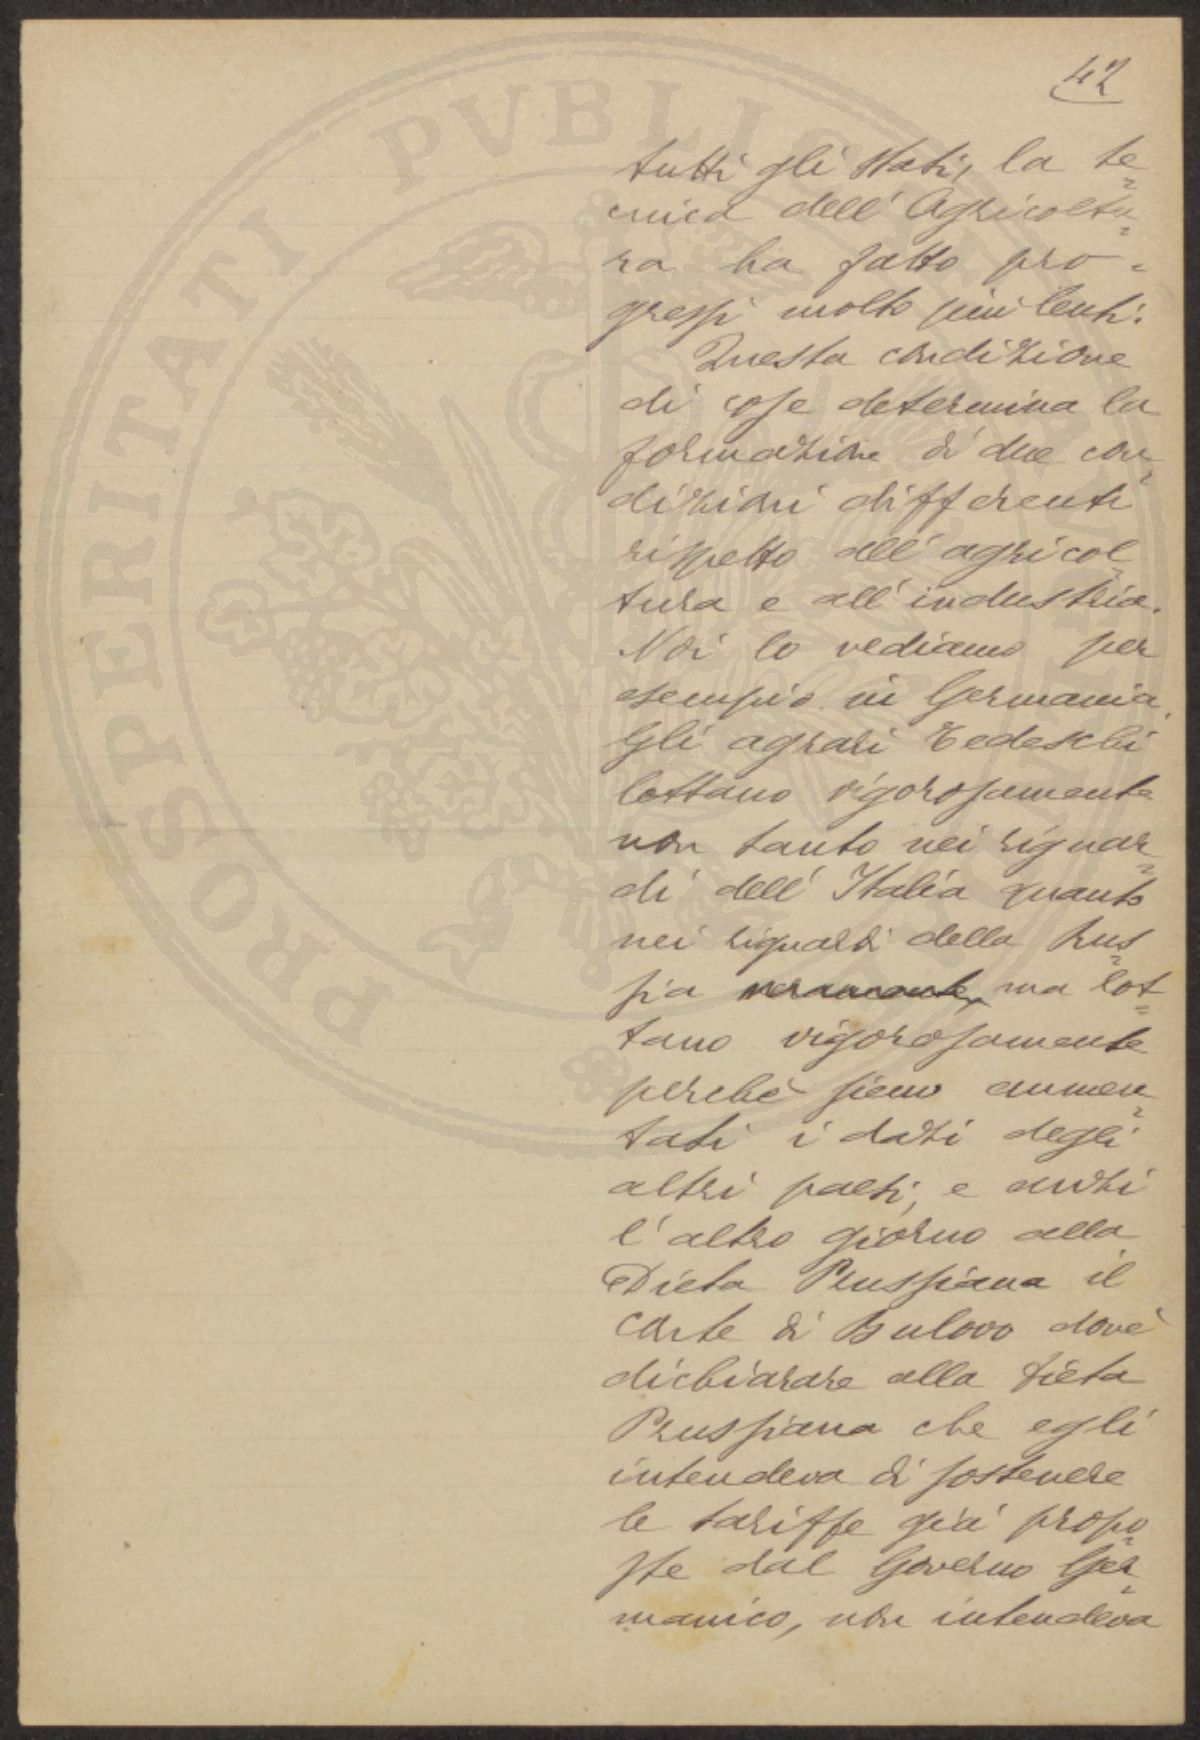 42
tutti gli Stati, la te=
cnica dell' Agricoltu=
ra ha fatto pro=
gressi molto più lenti.
Questa condizione
di cose determina la
formazione di due con=
dizioni differenti
rispetto all' agricol=
tura e all' industria.
Noi lo vediamo per
esempio in Germania.
Gli agrari Tedeschi
lottano vigorosamente
non tanto nei riguar=
di dell' Italia quanto
nei riguardi della Rus=
sia veramente, ma lot=
tano vigorosamente
perchè sieno aumen=
tati i dazi degli
altri paesi, e anzi
l' altro giorno alla
Dieta Prussiana il
Conte di Bulovo dovè
dichiarare alla Dieta
Prussiana che egli
intendeva di sostenere
le tariffe già propo=
ste dal Governo Ger=
manico, non intendeva
PROSPERITATI PVBLICAE